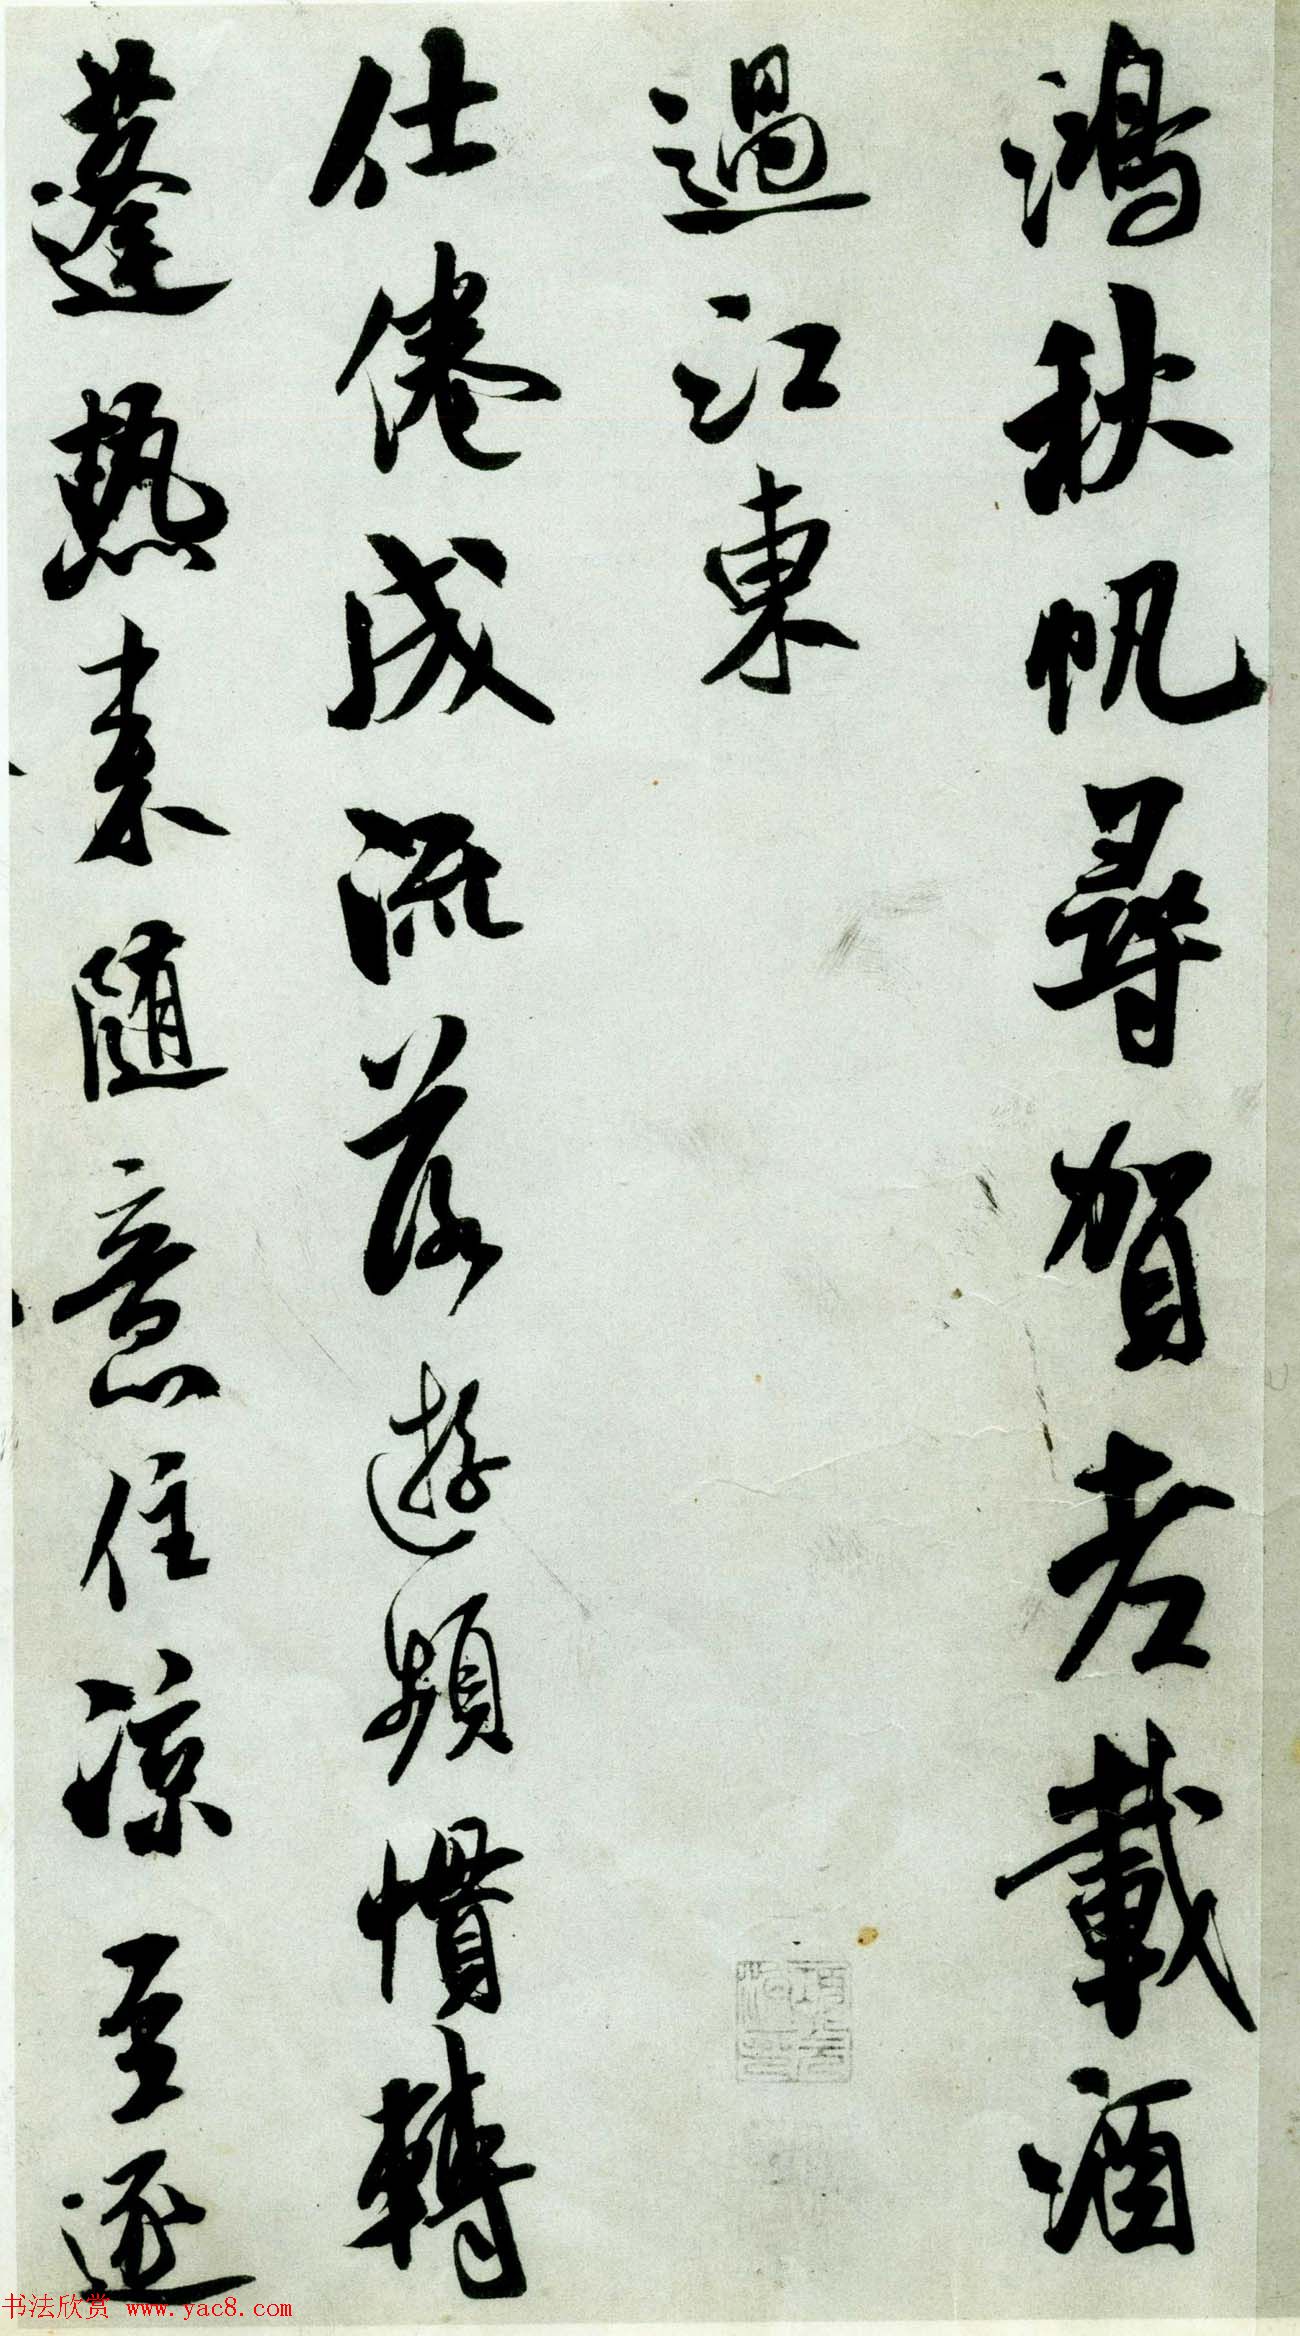 鴻秋帆尋賀老載酒
過江東
仕倦成流落遊頻慣轉
蓬熱來隨意住涼至逐
书法欣赏 www.yac8.com